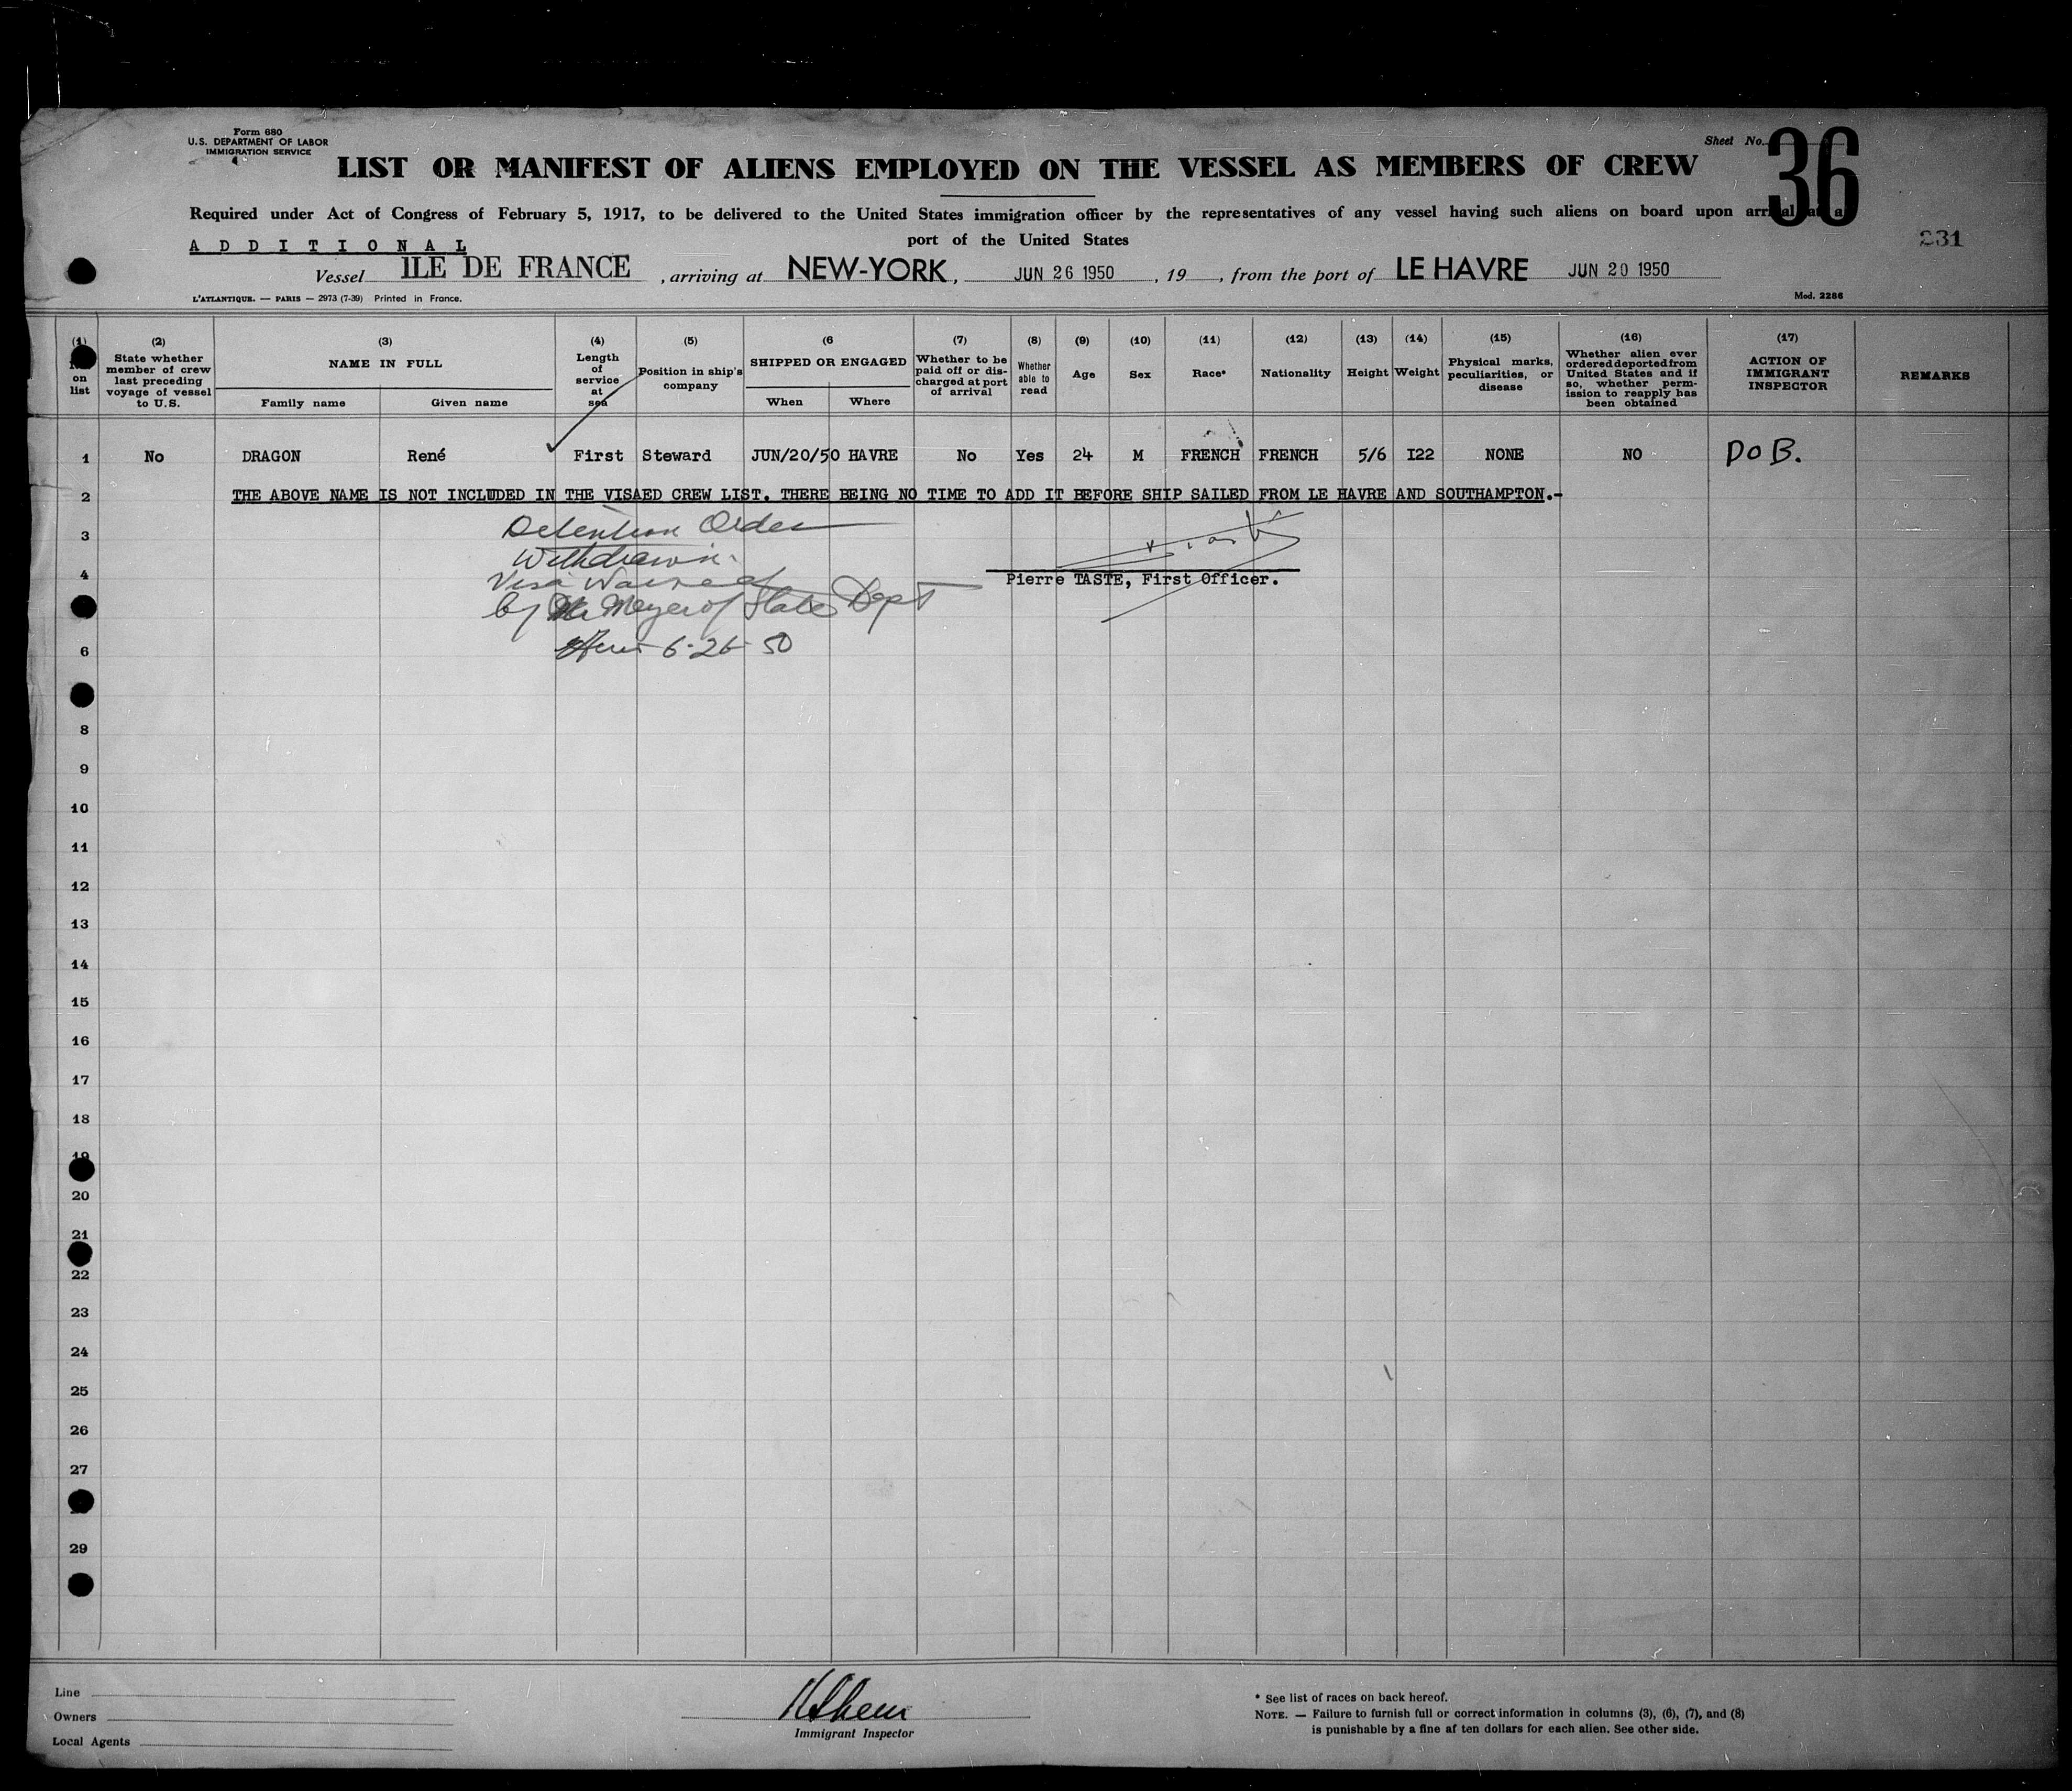 Form 680
U.S. DEPARTMENT OF LABOR
IMMIGRATION SERVICE
Sheet No. 36
LIST OR MANIFEST OF ALIENS EMPLOYED ON THE VESSEL AS MEMBERS OF CREW
Required under Act of Congress of February 5, 1917, to be delivered to the United States immigration officer by the representatives of any vessel having such aliens on board upon arrival at a
port of the United States
231
ADDITIONAL
Vessel ILE DE FRANCE, arriving at NEW-YORK, JUN 26 1950, 19 , from the port of LE HAVRE JUN 20 1950
L'ATLANTIQUE. — PARIS — 2973 (7-39) Printed in France.
Mod. 2286
(1) on list
(2) State whether member of crew last preceding voyage of vessel to U.S.
(3) NAME IN FULL
Family name Given name
(4) Length of service at sea
(5) Position in ship's company
(6 SHIPPED OR ENGAGED
When Where
(7) Whether to be paid off or discharged at port of arrival
(8) Whether able to read
(9) Age
(10) Sex
(11) Race*
(12) Nationality
(13) Height
(14) Weight
(15) Physical marks, peculiarities, or disease
(16) Whether alien ever ordered deported from United States and if so, whether permission to reapply has been obtained
(17) ACTION OF IMMIGRANT INSPECTOR
REMARKS
1 No DRAGON René First Steward JUN/20/50 HAVRE No Yes 24 M FRENCH FRENCH 5/6 I22 NONE NO DOB.
2 THE ABOVE NAME IS NOT INCLUDED IN THE VISAED CREW LIST. THERE BEING NO TIME TO ADD IT BEFORE SHIP SAILED FROM LE HAVRE AND SOUTHAMPTON.-
3 Detention Order
Withdrawn.
4 Visa Waived
Pierre TASTE, First Officer.
by Mr Meyer of State Dept
6 6-26-50
8
9
10
11
12
13
14
15
16
17
18
19
20
21
22
23
24
25
26
27
29
Line
Owners
Local Agents
Immigrant Inspector
* See list of races on back hereof.
NOTE. — Failure to furnish full or correct information in columns (3), (6), (7), and (8)
is punishable by a fine af ten dollars for each alien. See other side.